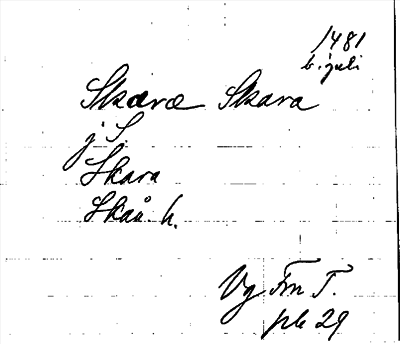 1481
6. juli
Skaræ Skara
j S.
Skara
Skån. h.
Vg Fm T.
pk 29